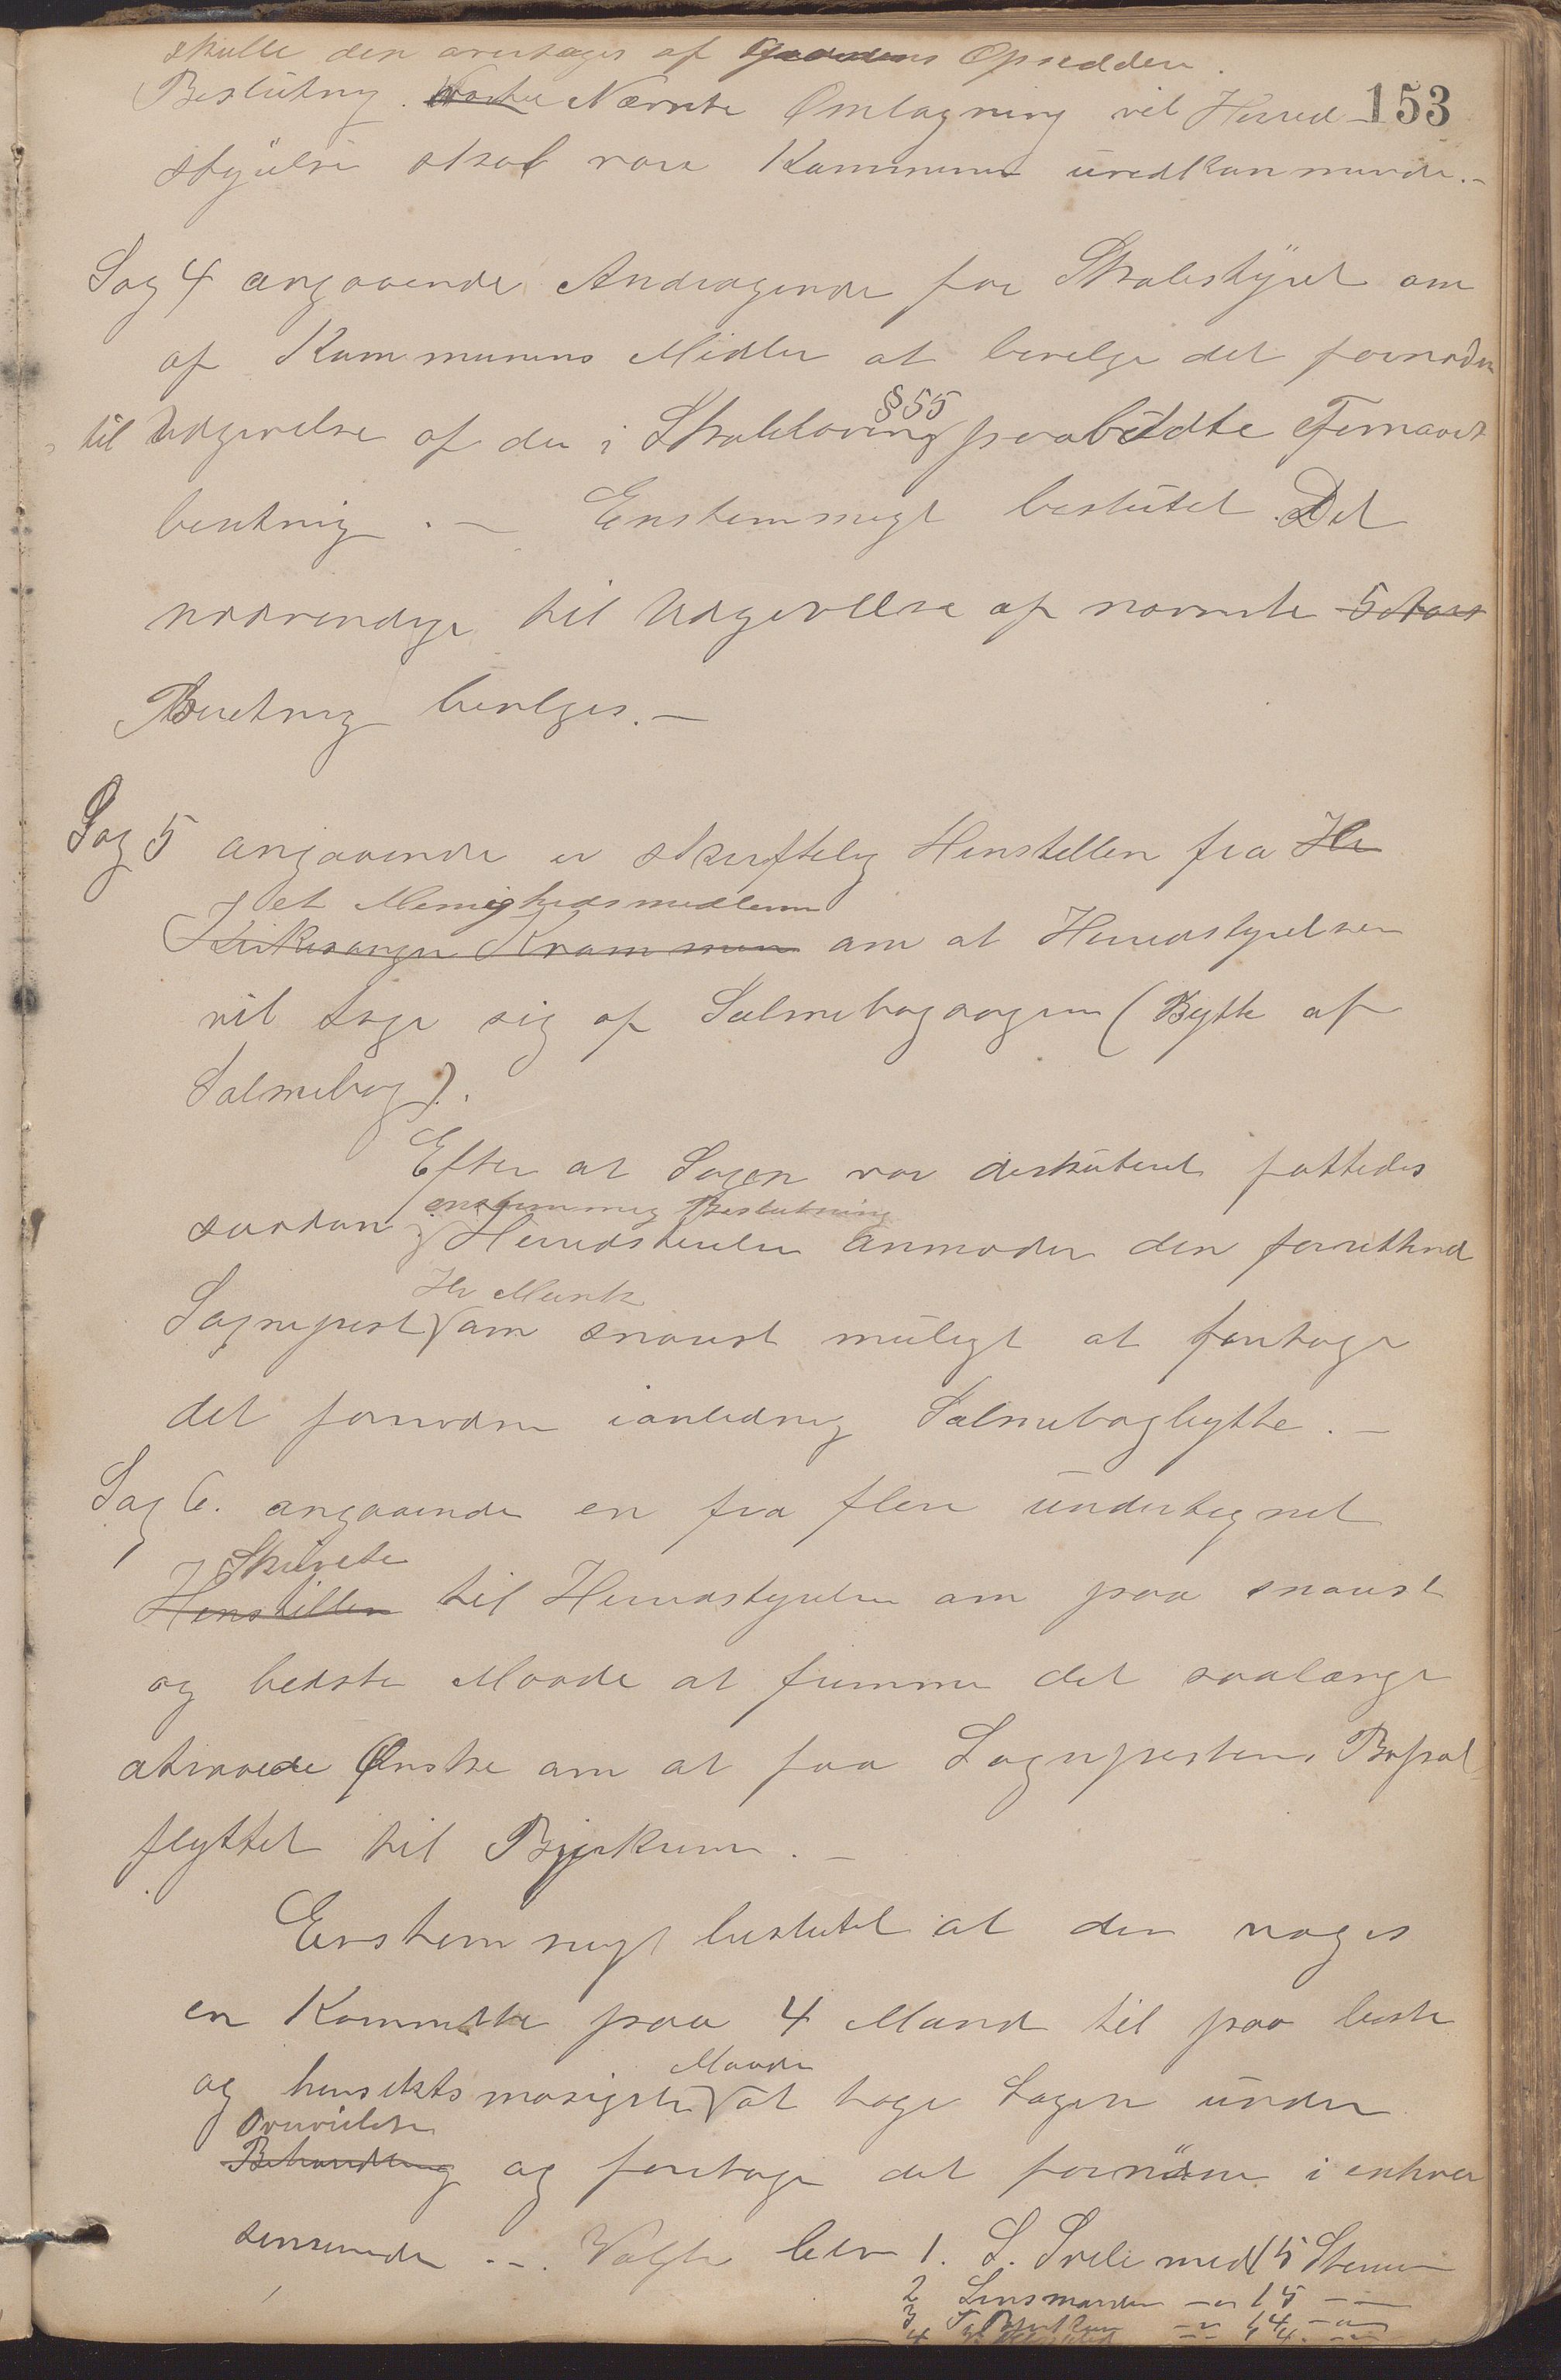 skulle den overtages af Opsedden.
Beslutnig. Nævnte Omlagning vil Herred- 153
styrelse skal være Kommunen uvedkommende.-
Sag 4 angaaende Andragende fra Skolestyret om
af Kommunens Midler at bevilge det fornødne
§55
til Udgivelse af den i Skoleloven paabudte Femaars
beretnig .- Enstemmigt besluttet. Det
nødvendige til Udgivelse af nævnte 5 Aars
Beretnig bevilges.-
Sag 5 angaaende en skriftelig Henstillen fra Hr
et Menighedsmedlem
Kirkesanger om at Herredstyrelsen
vil tage sig af Salmebogsagen (Bytte af
Salmebog).
Efter at Sagen var diskuteret fattedes
enstemmig Beslutning
saadan Herredstyrelsen anmoder den forrettende
Hr Munk
Sognepræst om snarest muligt at foretage
det fornødne ianlednig Salmebogbytte.-
Sag 6. angaaende en fra flere undertegnet
Skrivelse
Henstillen til Herredstyrelsen om paa snarest
og bedste Maade at fremme det saalænge
attraaede Ønske om at faa Sognepræstens Bopæl
flyttet til Bjerkreim.-
Enstemmigt besluttet at der vælges
en Kommitte paa 4 Mand til paa beste
Maade
og hensiktsmæsigste at tage Sagen under
Overveielse
Behandling og foretage det fornødne i enhver
henseende .-. Valgte blev 1. S. Svele med 15 Stemmer
2 Lensmanden -"- 15 -"-
3 -"- 14 -"-
4 -"- 14 -"-